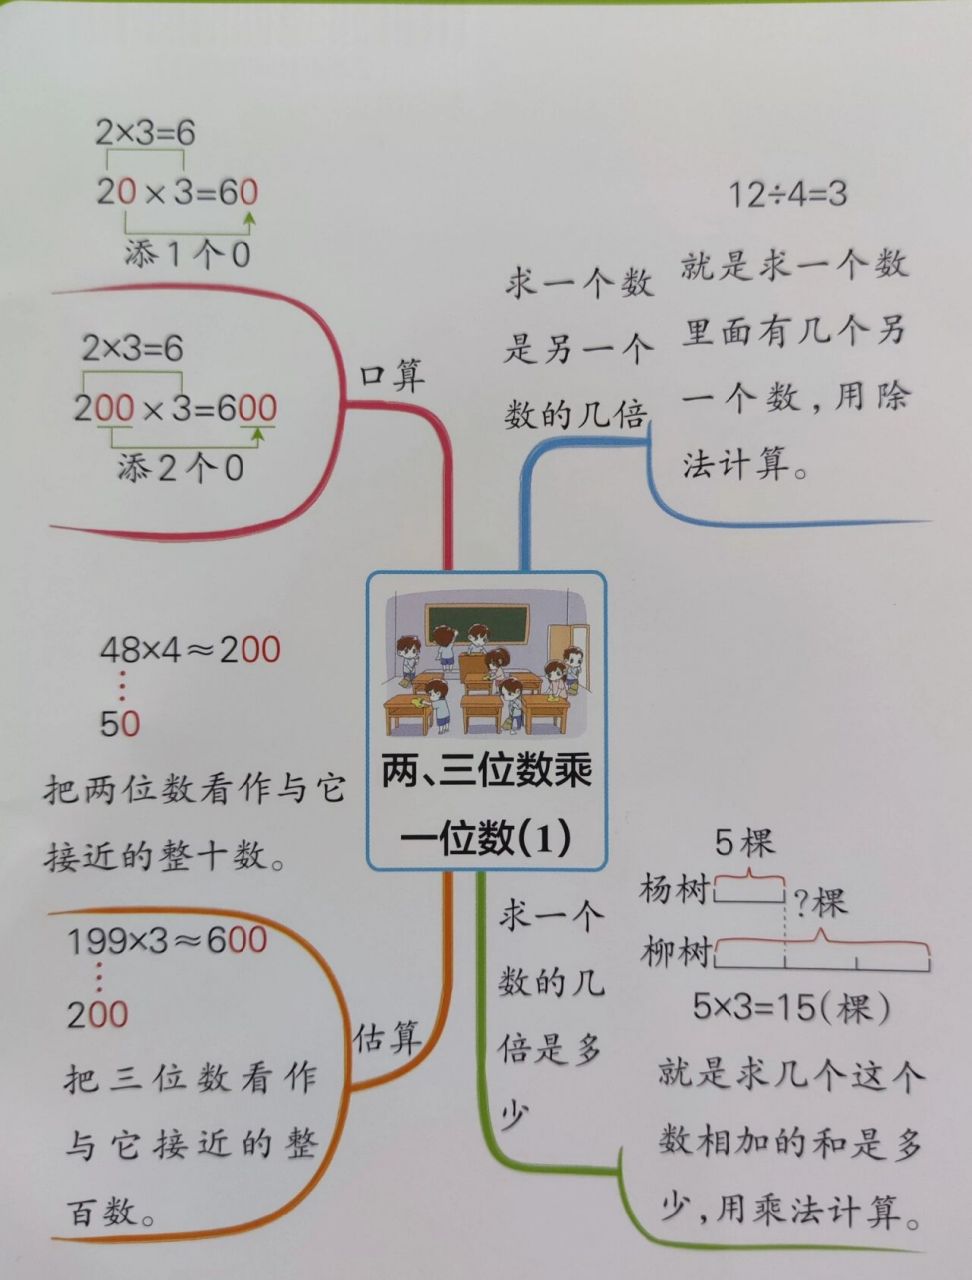 2×3=6
20×3=60
添1个0
2×3=6
200×3=600
添2个0
口算
求一个数
是另一个
数的几倍
12÷4=3
就是求一个数
里面有几个另
一个数，用除
法计算。
两、三位数乘
一位数(1)
48×4≈200
50
把两位数看作与它
接近的整十数。
199×3≈600
200
把三位数看作
与它接近的整
百数。
估算
求一个
数的几
倍是多
少
5棵
杨树
?棵
柳树
5×3=15(棵)
就是求几个这个
数相加的和是多
少，用乘法计算。